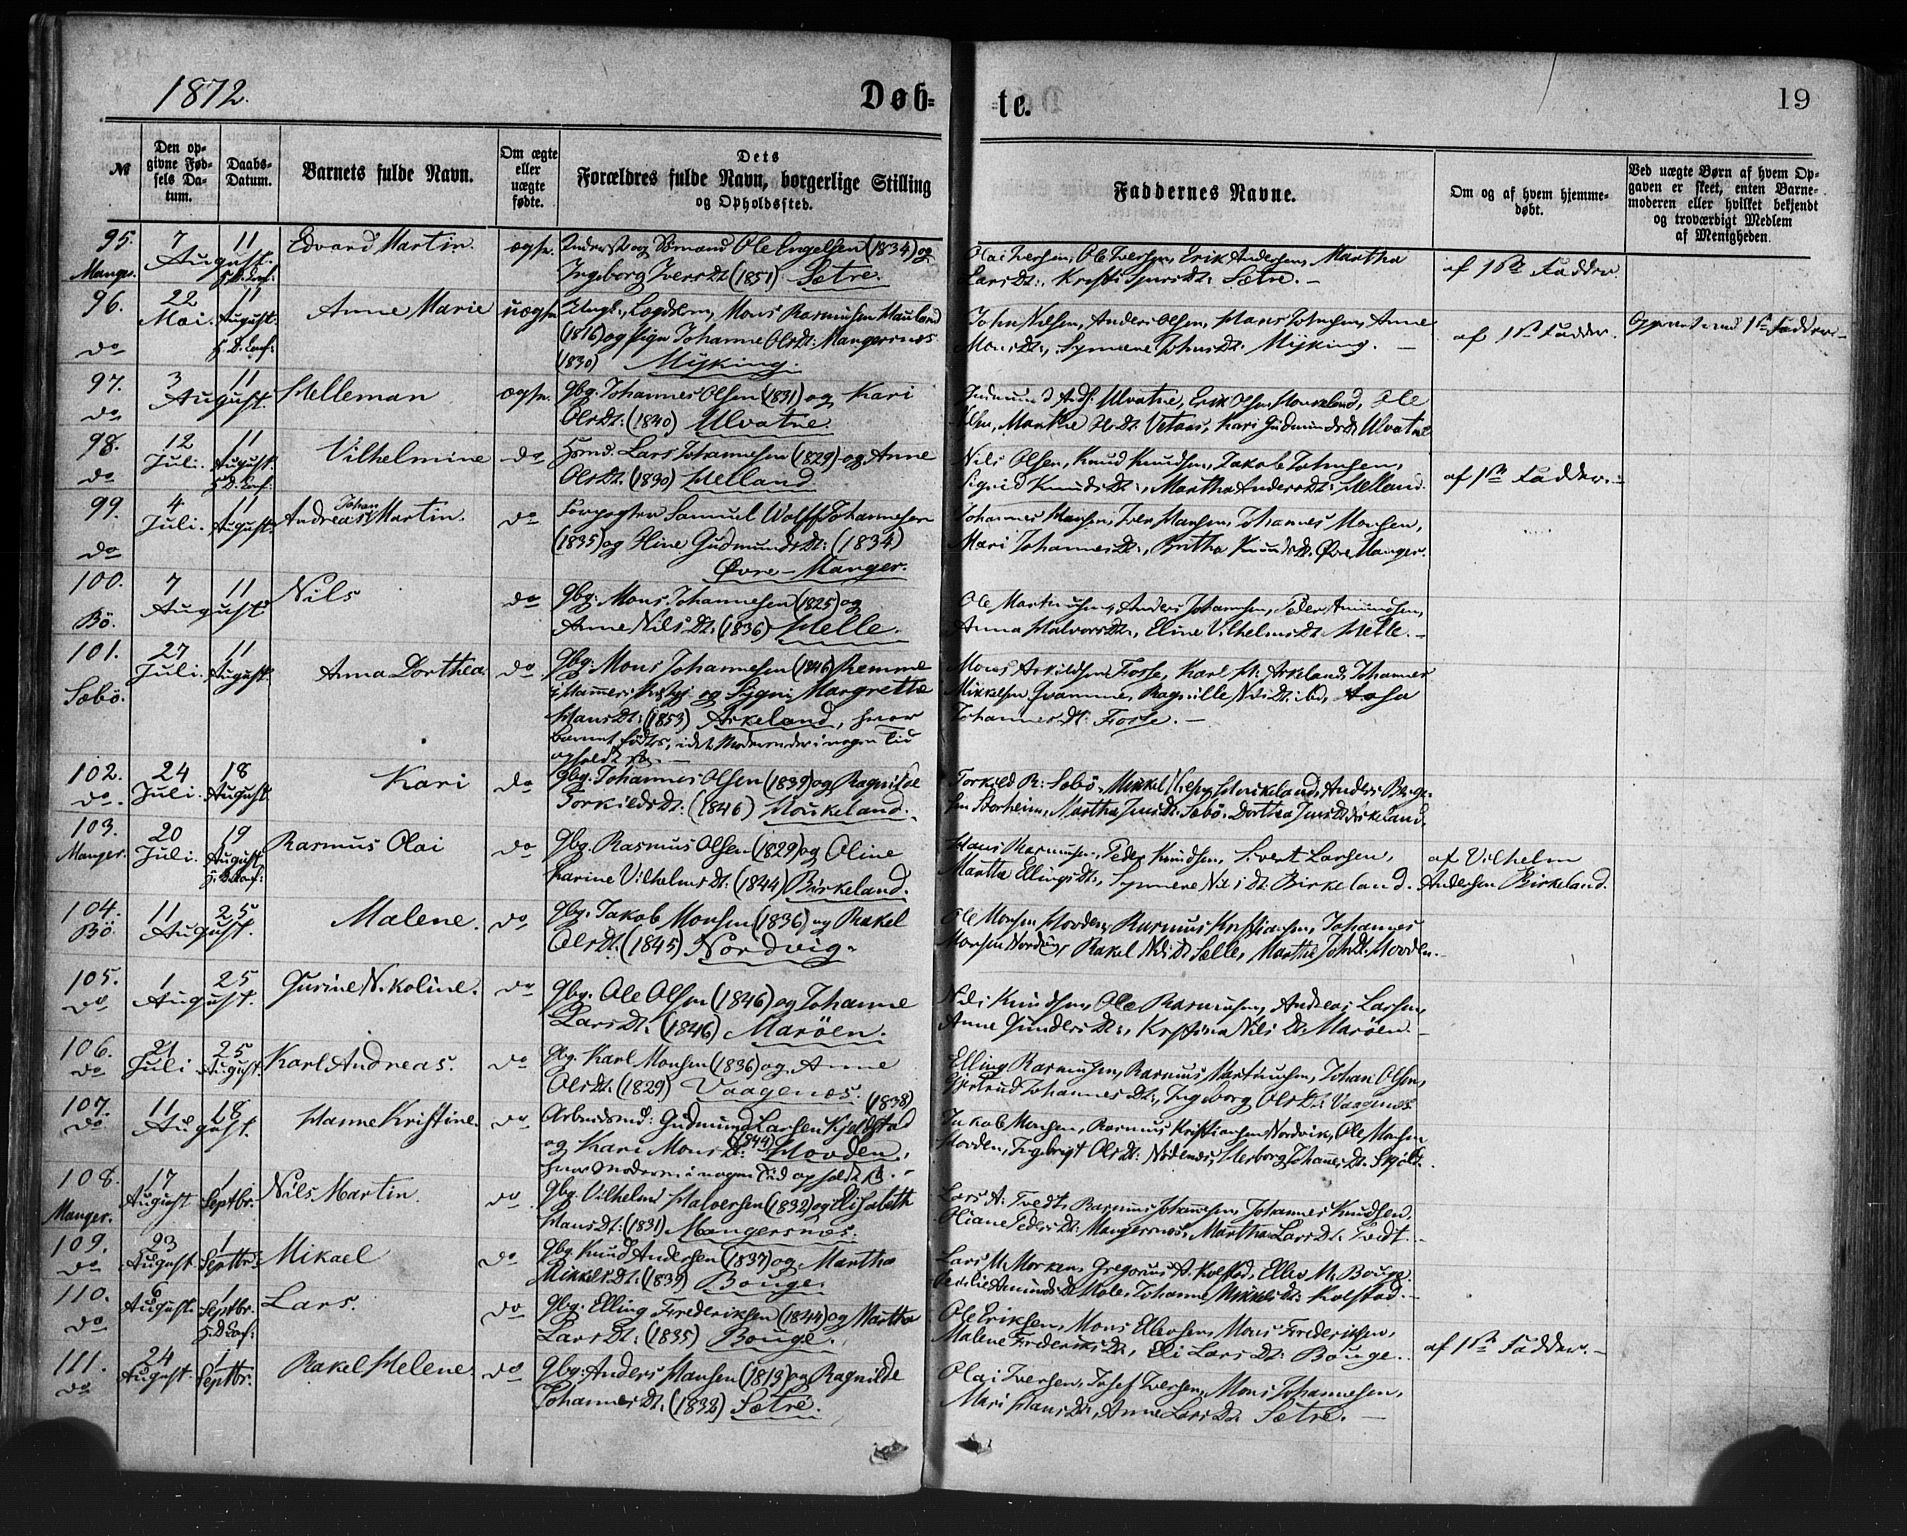 1872.
Døb-
te.
19
№
Den op-
givne Fød-
sels Da-
tum.
Daabs-
Datum.
Barnets fulde Navn.
Om ægte
eller
uægte
fødte.
Dets
Forældres fulde Navn, borgerlige Stilling
og Opholdssted.
Faddernes Navne.
Om og af hvem hjemme-
døbt.
Ved uægte Børn af hvem Op-
gaven er skeet, enten Barne-
moderen eller hvilket bekjendt
og troværdigt Medlem
af Menigheden.
95. 7 11 Edvard Martin. ægte. Ole Engelsen (1834) og Olai Iversen, Ole Iversen, Erik Andersen, Martha
Manges. August. Ingeborg Iversdt. (1851) Sætre. Larsdt., Sætre. af 1ste Fadder.
96. 22 11 Anne Marie uægte Mons Rasmusen Hauland John Nilsen, Anders Olsen, Hans Johnsen, Anne
Mai. August. (1816) og Pige Johanne Olsdt. Mangersnes Monsdt., Synneve Johnsdt. Myking. af 1ste Fadder. 1ste Fadder.
do (1830) Myking.
97. 3 11 Helleman ægte. Gbg. Johannes Olsen (1831) og Kari Ulvatne, Erik Ole
do August. Olsdt. (1840) Ulvatne. Marthe Olsdt. Kari Gudmundsdt. Ulvatne
98. 12 11 Vilhelmine do Lars Johannesen (1829) og Anne Nils Olsen, Knud Knudsen, Jakob Johnsen,
do Juli. August. Olsdt. (1830) Helland Sigrid Knudsdt., Martha Andersdt. Helland. af 1ste Fadder.
99. 4 11 Andreas Johan Martin. do Samuel Wolff Johannesen Johannes Hansen, Iver Hansen, Johannes Monsen,
do Juli. August. (1835) og Stine Gudmundsdt. (1834) Mari Johannesdt., Britha Knudsdt. Øvre Manger.
Øvre-Manger.
100. 7 11 Nils do Gbg. Mons Johannesen (1825) og Ole Martinusen, Anders Johannesen, Peder Amundsen,
Bö. August. Anne Nilsdt. (1836) Helle. Anna Halvorsdt., Eline Vilhelmsdt. Helle.
101. 27 11 Anna Dorthea do Gbg. Mons Johannesen (1846) Remme Mons Arkildsen Fosse, Karl H. Arkeland, Johannes
Sæbö. Juli. August. og Margrethe Mikkelsen Qvamme, Ragnille Nilsdt.
Hansdt. (1853) Arkeland, hvor Johannesdt. Fosse.
barnet födtes, Moderen i nogen Tid
opholdt sig.
102. 24 18 Kari do Gbg. Johannes Olsen (1839) og Ragnilde Torkild R. Sæbö, Mikkel Anders Birge-
do. Juli. August Torkildsdt. (1846) Houkeland. Storheim, Martha Sæbö, Dorthea
103. 20 19 Rasmus Olai do Gbg. Rasmus Olsen (1829) og Oline Hans Rasmusen, Peder Knudsen, Sivert Larsen, af Vilhelm
Manger. Juli. August. Karine Vilhelmsdt. (1844) Birkeland. Martha Ellingsdt., Synneve Nilsdt. Birkeland. Andersen Birkeland.
104. 11 25 Malene. do Gbg. Jakob Monsen (1836) og Rakel Ole Monsen Hovden, Rasmus Kristiansen, Johannes
Bö. August. Olsdt. (1845) Nordvig. Monsen Nordvig, Rakel Nilsdt. Sælle, Martha Hovden.
105. 1 25 Gurine Nikoline. do Gbg. Ole Olsen (1846) og Johanne Nils Knudsen, Ole Rasmusen, Andreas Larsen,
do August. Larsdt. (1846) Maröen. Anne Gundersdt., Kristina Nilsdt. Maröen.
106. 21 25 Karl Andreas. do Gbg. Karl Monsen (1836) og Anne Elling Rasmusen, Rasmus Martinusen, Johan Olsen,
do Juli August. Olsdt. (1829) Vaagenes. Gjertrud Johannesdt., Ingeborg Olsdt. Vaagenes.
107. 11 18 Hanne Kristine. do Arbeidsmd. Gudmund Larsen Kjolstad (1838) Jakob Monsen, Rasmus Kristiansen Nordvik, Ole Monsen
do. August. og Kari Monsdt. (1844) Hovden, Hovden, Ingebrigt Herborg
hvor Moderen i nogen Tid opholdt sig.
108. 17 1 Nils Martin. do Gbg. Vilhelm Halversen (1832) og Elisabeth Lars A. Tvedt, Rasmus Johannesen, Johannes Knudsen,
Manger. August Septbr. Hansdt. (1831) Mangersnes. Oliane Pedersdt. Mangersnes, Martha Larsdt. Tvedt.
109. 23 1 Mikael do Gbg. Knud Andersen (1837) og Martha Lars M. Morken, Gregorius A. Kolstad, Ellev M. Bouge
do August Septbr. Mikkelsdt. (1839) Bouge. Johanne Mikkelsdt. Kolstad.
110. 6 1 Lars. do Gbg. Elling Frederiksen (1844) og Martha Ole Eriksen, Mons Ellevsen, Mons Frederiksen,
do August. Septbr. Larsdt. (1835) Bouge. Malene Frederiksdt., Eli Larsdt. Bouge. af 1ste Fadder.
111. 24 1 Rakel Helene. do Gbg. Anders Hansen (1813) og Ragnilde Olai Iversen, Josef Iversen, Mons Johannesen,
do August. Septbr. Johannesdt. (1832) Sætre. Mari Hansdt., Anne Larsdt. Sætre.